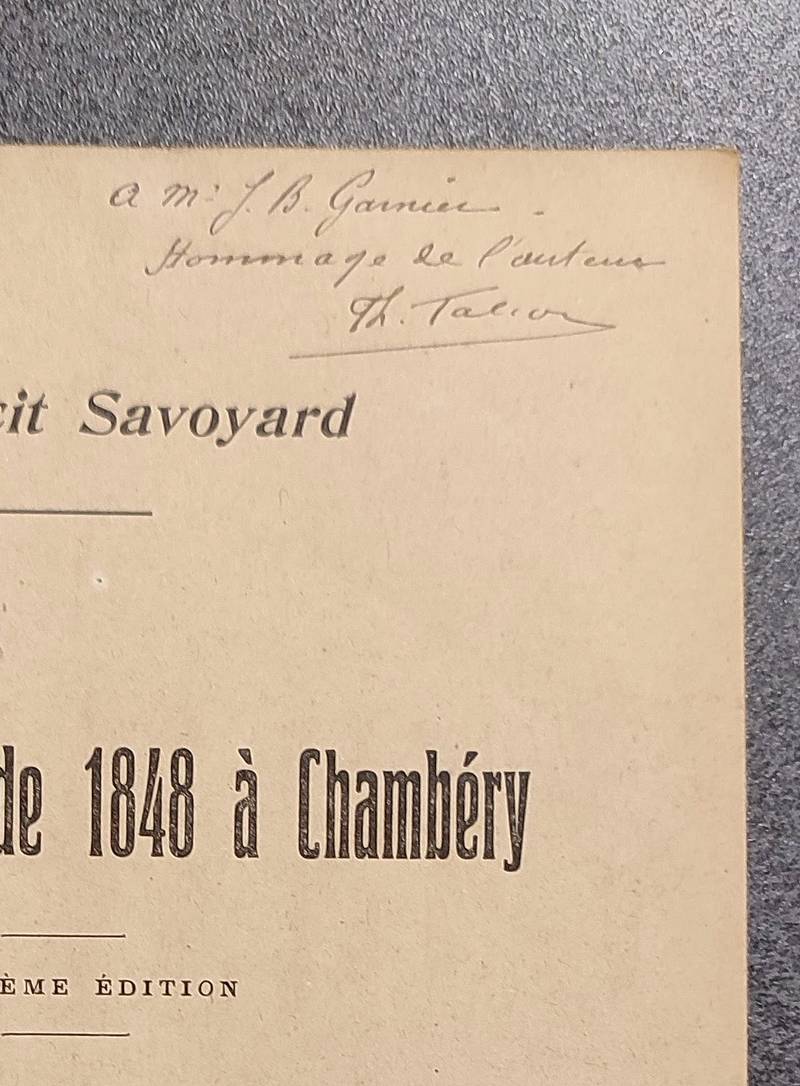 a Mr J. B. Garnier.
Hommage de l'auteur
Th.
cit Savoyard
de 1848 à Chambéry
ÈME ÉDITION